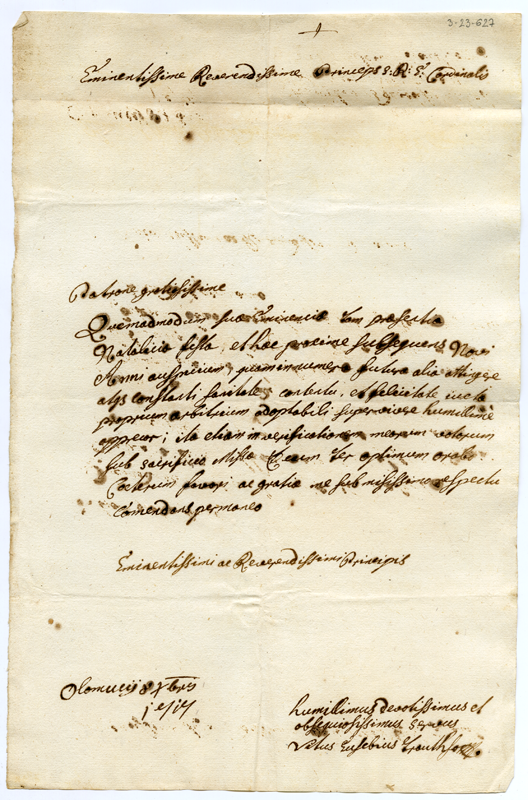 3-23-627
Eminentissime Reverendissime Princeps S: R: E: Cardinalis
Patrone gratiosissime
Quemadmodum suae Eminentiae tam praesentia
Natalitia festa, et hoc proxime subsequens Novi
Anni auspicium, quam innumera futura alia
alys constanti sanitate, contentu, et felicitate iuxta
proprium arbitrium adoptabili supervivere humillime
apprecor; ita etiam in verificationem meorum votorum
sub sacrificio Missae Deum ter optimum orabo.
Caeterum favori ac gratiae me submisissimo respectu
comendans permaneo
Eminentissimi ac Reverendissimi Principis
Olomucij 8 Xbris
humillimus devotissimus et
obsequiosissimus servus
Vitus Eusebius